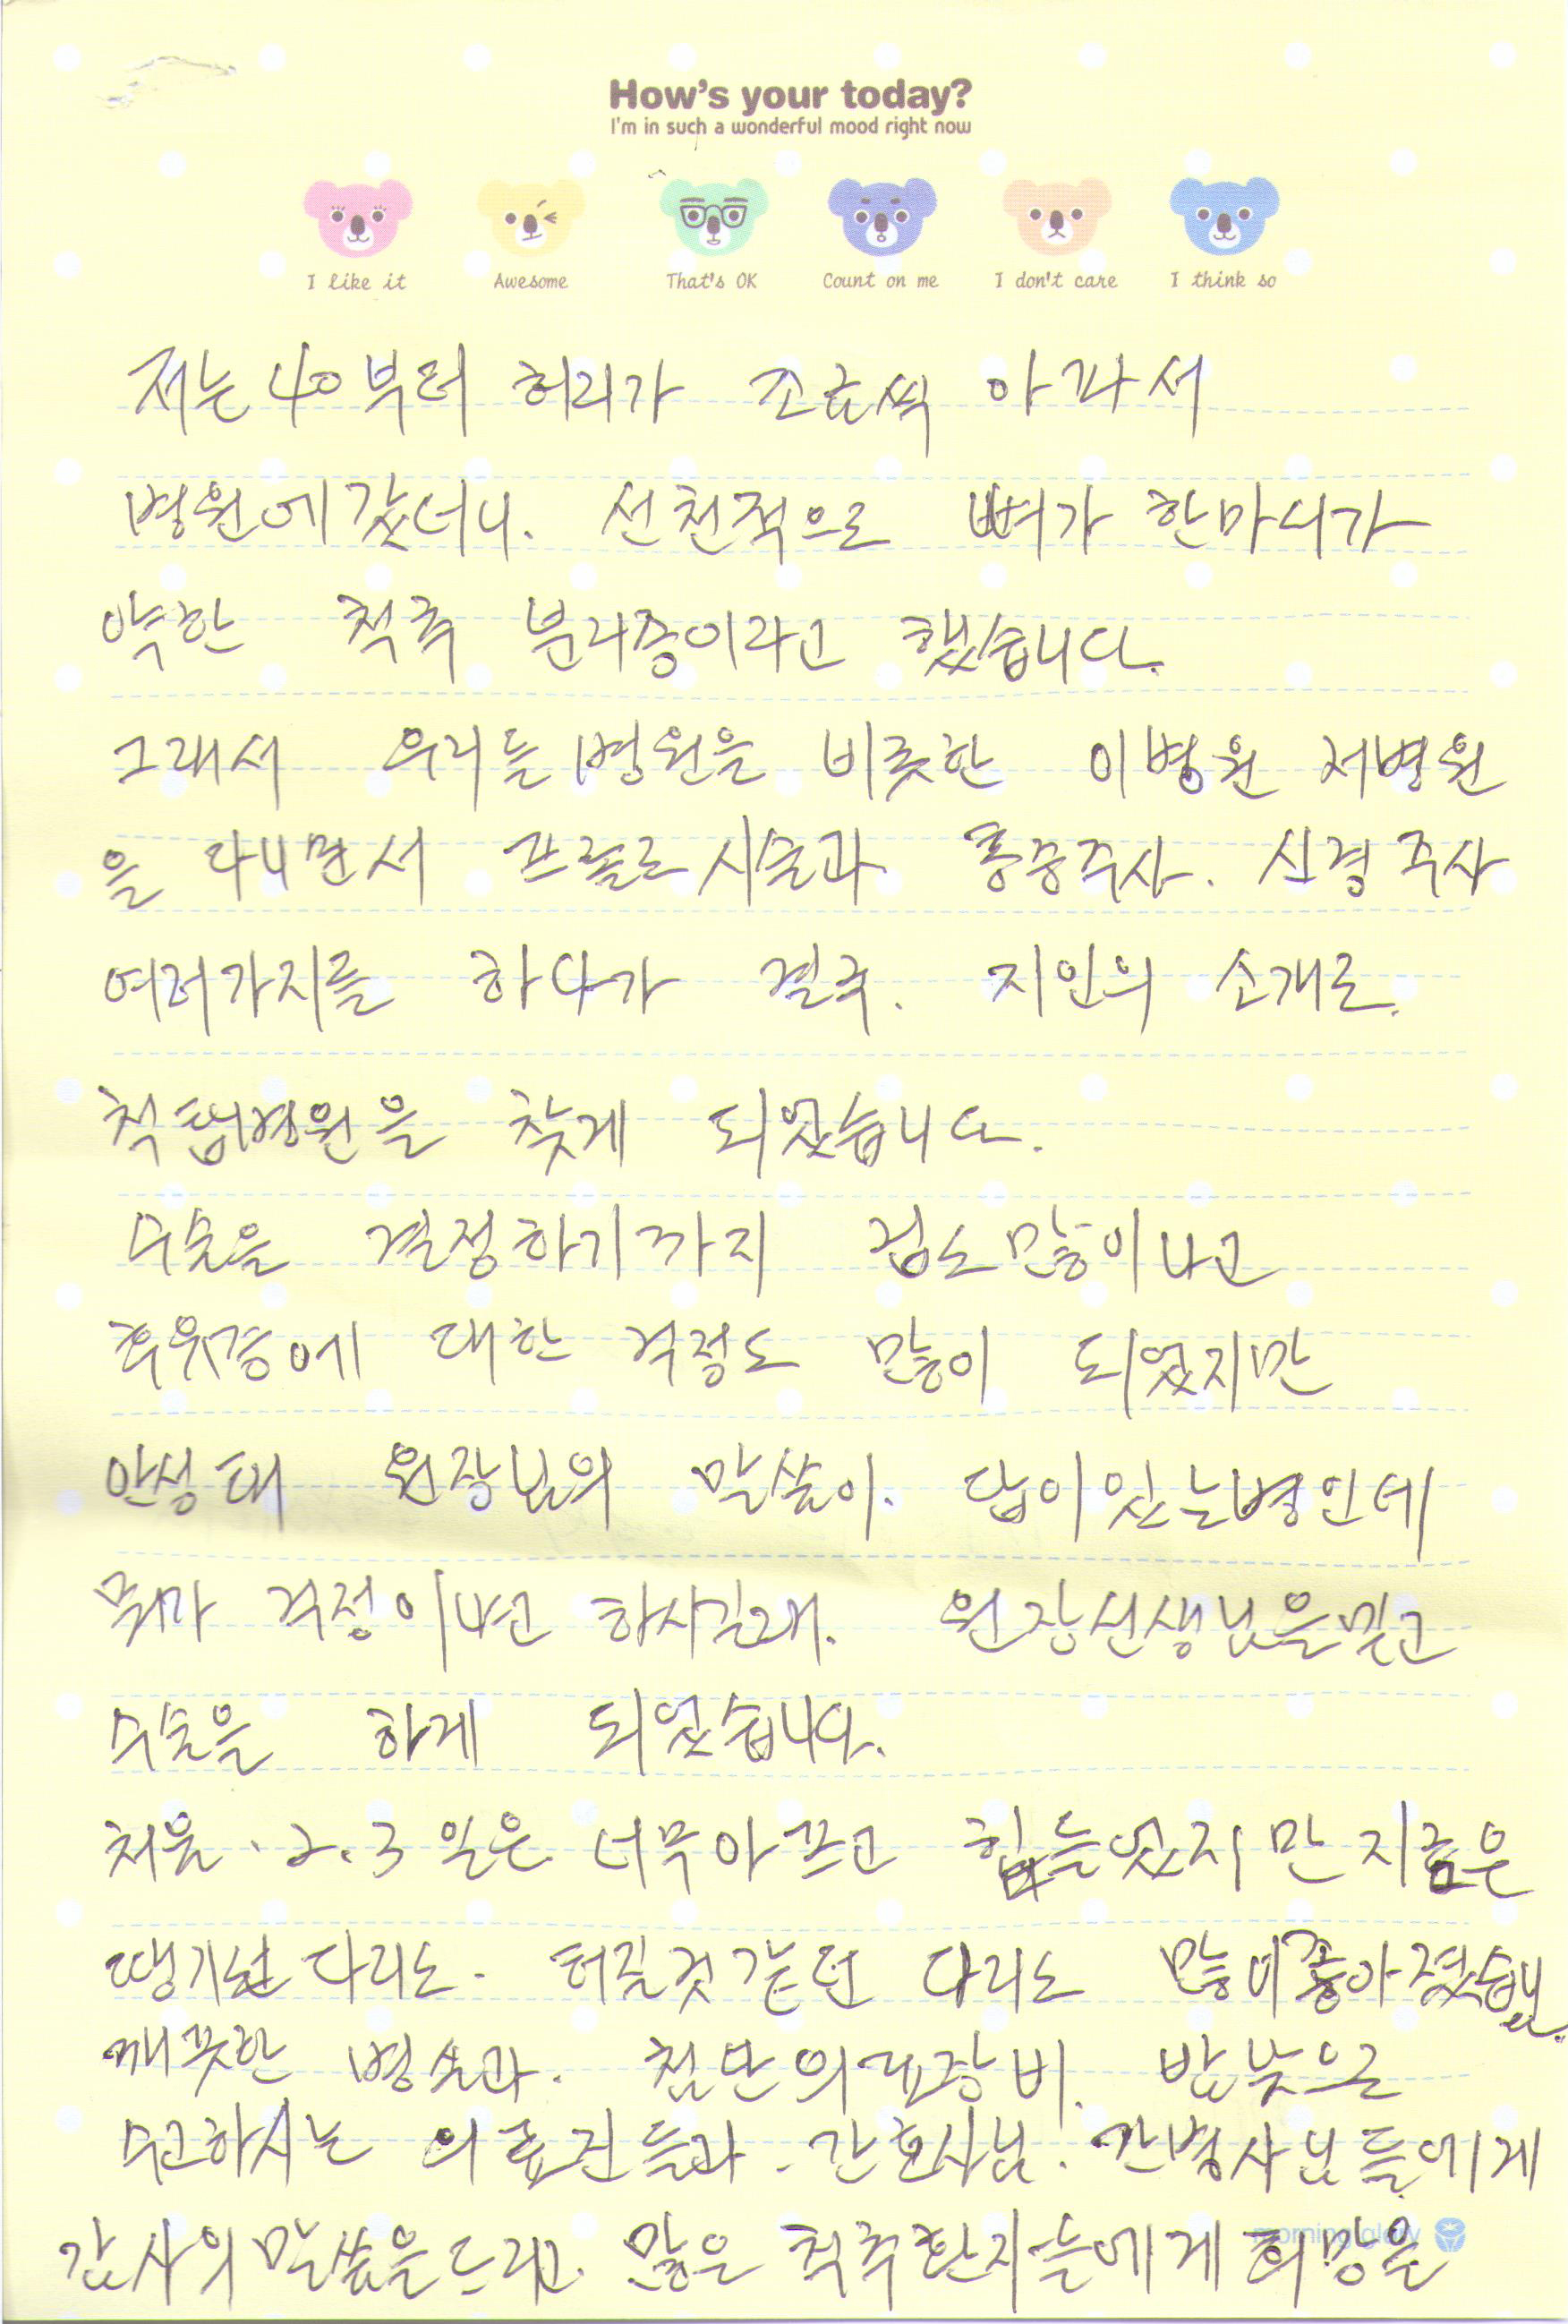 How's your today?
I'm in such a wonderful mood right now
I like it Awesome That's OK Count on me I don't care I think so
저는 40부터 허리가 조금씩 아파서
병원에 갔더니. 선천적으로 뼈가 한마디가
약한 척추 분리증이라고 했습니다.
그래서 우리들병원을 비롯한 이병원 저병원
을 다니면서 프롤로시술과 통증주사. 신경주사
여러가지를 하다가 결국. 지인의 소개로.
척탑병원을 찾게 되었습니다.
수술을 결정하기까지 겁도많이나고
후유증에 대한 걱정도 많이 되었지만
안성태 원장님의 말씀이. 답이있는병인데
뭐가 걱정이냐고 하시길래. 원장선생님을믿고
수술을 하게 되었습니다.
처음. 2. 3일은 너무아프고 힘들었지만 지금은
땡기던 다리도. 터질것같던 다리도 많이좋아졌습니다.
깨끗한 병실과. 첨단의료장비. 밤낮으로
수고하시는 의료진들과. 간호사님. 간병사님들에게
감사의말씀을드리고. 많은 척추환자들에게 희망을
morning glory